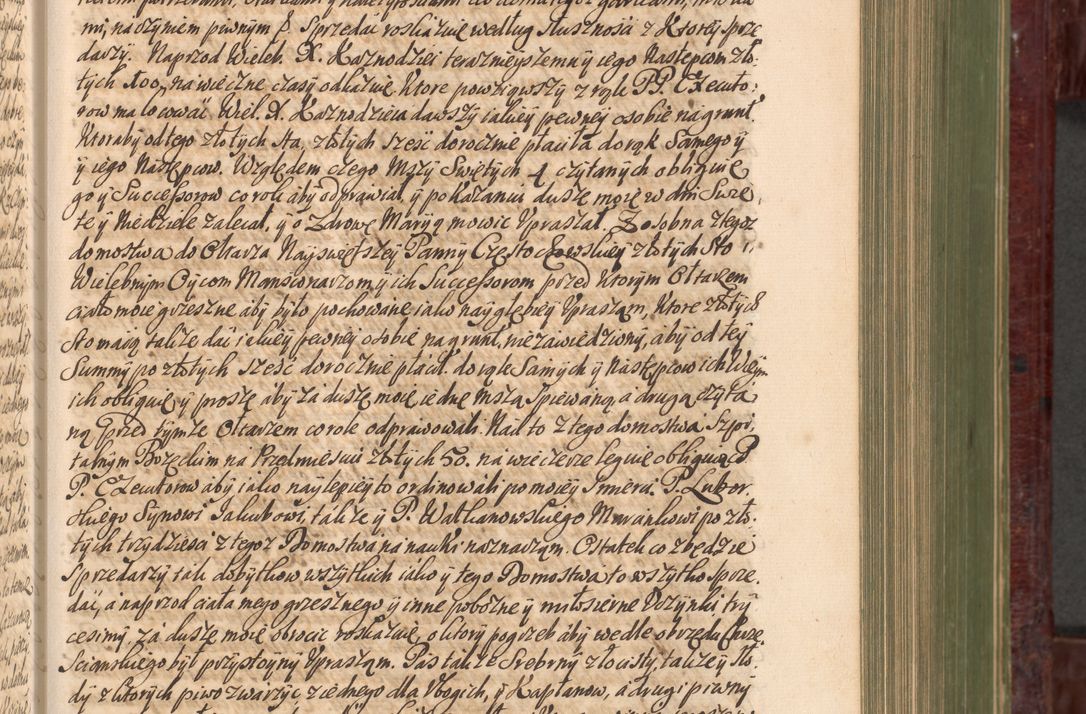 mi, naczyniem piwnym &. Sprzedać roskazuię według słusznosci z Ktorey sprze
daży. Naprzod Wieleb. X. Kaznodziei terazniejszemu y iego Następcom zło-
tych 100, na wieczne czasy odkazuię, Ktore powziąwszy z rąk PP. Exekuto-
row ma locować Wiel. X. Kaznodzieia dawszy iakiey pewney osobie na grunt.
Ktoraby od tego złotych sta, złotych sześć dorocznie płaciła do rąk Samego y
y iego Następcow. Względem czego Mszy Swiętych 4 czytanych obliguię
go y Successorow co rok aby odprawiał, y po Kazaniu duszę moię w dni Swię-
te y Niedziele zalecał, y o Zdrową Maryą mowić Vpraszał. Zosobna z tegoż
domostwa do Ołtarza Nayswiętszey Panny Częstochowskiey złotych sto
Wielebnym Oycom Mansionarzom y ich Successorom przed Ktorym Ołtarzem
ciało moie grzeszne aby było pochowane iako naygłębiey Vpraszam, Ktore złotych
sto maią także dać iakiey pewney osobie na grunt niezawiedziony, aby od tey
Summy po złotych sześć dorocznie płacił do rąk Samych y Następcow ich
ich obliguię y proszę aby za duszę moię iednę mszą spiewaną, a drugą czyta-
ną przed tymże Ołtarzem co rok odprawowali. Nad to z tego domostwa Szpi-
talnym Bożęckim na Przedmiesciu złotych 50. na wieczerze leguię obliguiąc
P. Exekutorow aby iako naylepiey to ordinowali po moiey smierci. P. Lubor-
skiego Synowi Jakubowi, także y P. Walkanowskiego Murarikowi po zło-
tych trzydziesci z tegoż Domostwa na nauki naznaczam. Ostatek co zbędzie
sprzedaży tak dobytkow wszytkich iako y tego Domostwa to wszytko sprze-
dać, a naprzod ciała mego grzesznego y inne pobożne y miłosierne Uczynki try-
cesimy za duszę moię obrocić roskazuię, o ktory pogrzeb aby wedle obrzędu Chrze-
scianskiego był przystoyny Vpraszam. Pas także srebrny złocisty, także y sło-
dy z ktorych piwo zwarzyć z iednego dla Vbogich, y Kapłanow, a drugi piwny